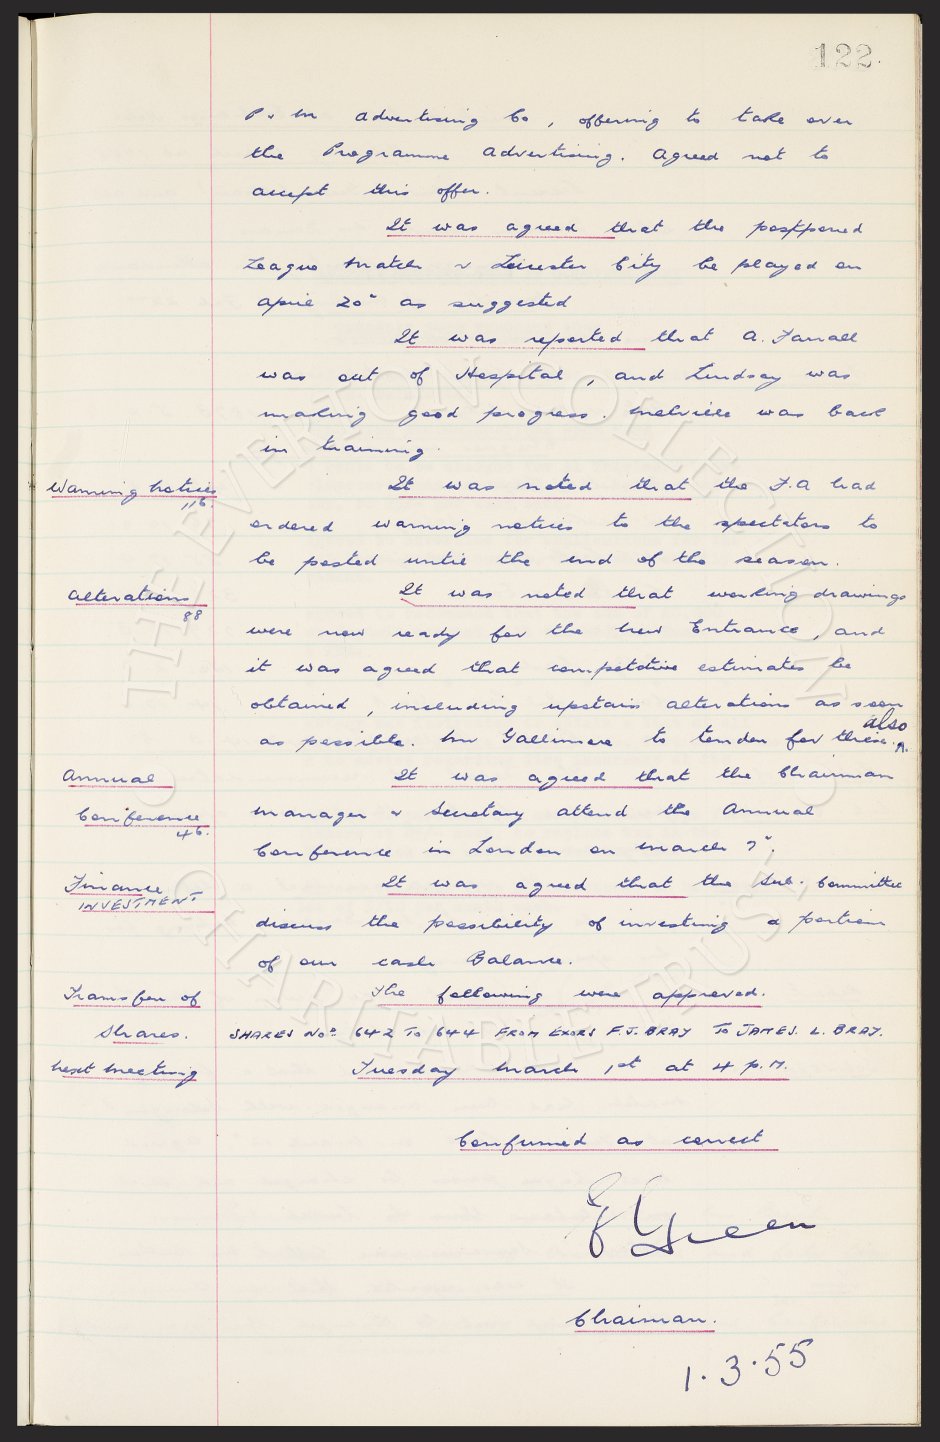 122.
P & M Advertising Co, offering to take over
the Programme Advertising. Agreed not to
accept this offer.
It was agreed that the postponed
League Match v Leicester City be played on
April 20" as suggested
It was reported that A. Farrall
was out of Hospital, and Lindsay was
making good progress. Melville was back
in training.
Warning Notices It was noted that the F.A had
116.
ordered warning notices to the spectators to
be posted until the end of the season.
Alterations It was noted that working drawings
88
were now ready for the new Entrance, and
it was agreed that competative estimates be
obtained, including upstairs alterations as soon
also
as possible. Mr Gallimore to tender for these.
Annual It was agreed that the Chairman
Conference Manager & Secretary attend the Annual
46.
Conference in London on March 7".
Finance It was agreed that the Sub. Committee
INVESTMENT
discuss the possibility of investing a portion
of our cash Balance.
Transfer of The following were approved.
Shares. SHARES Nos 642 TO 644 FROM EXORS F.J. BRAY TO JAMES. L. BRAY.
Next Meeting Tuesday March 1st at 4 p.m.
Confirmed as correct
Green
Chairman.
1.3.55
THE EVERTON COLLECTION
CHARITABLE TRUST